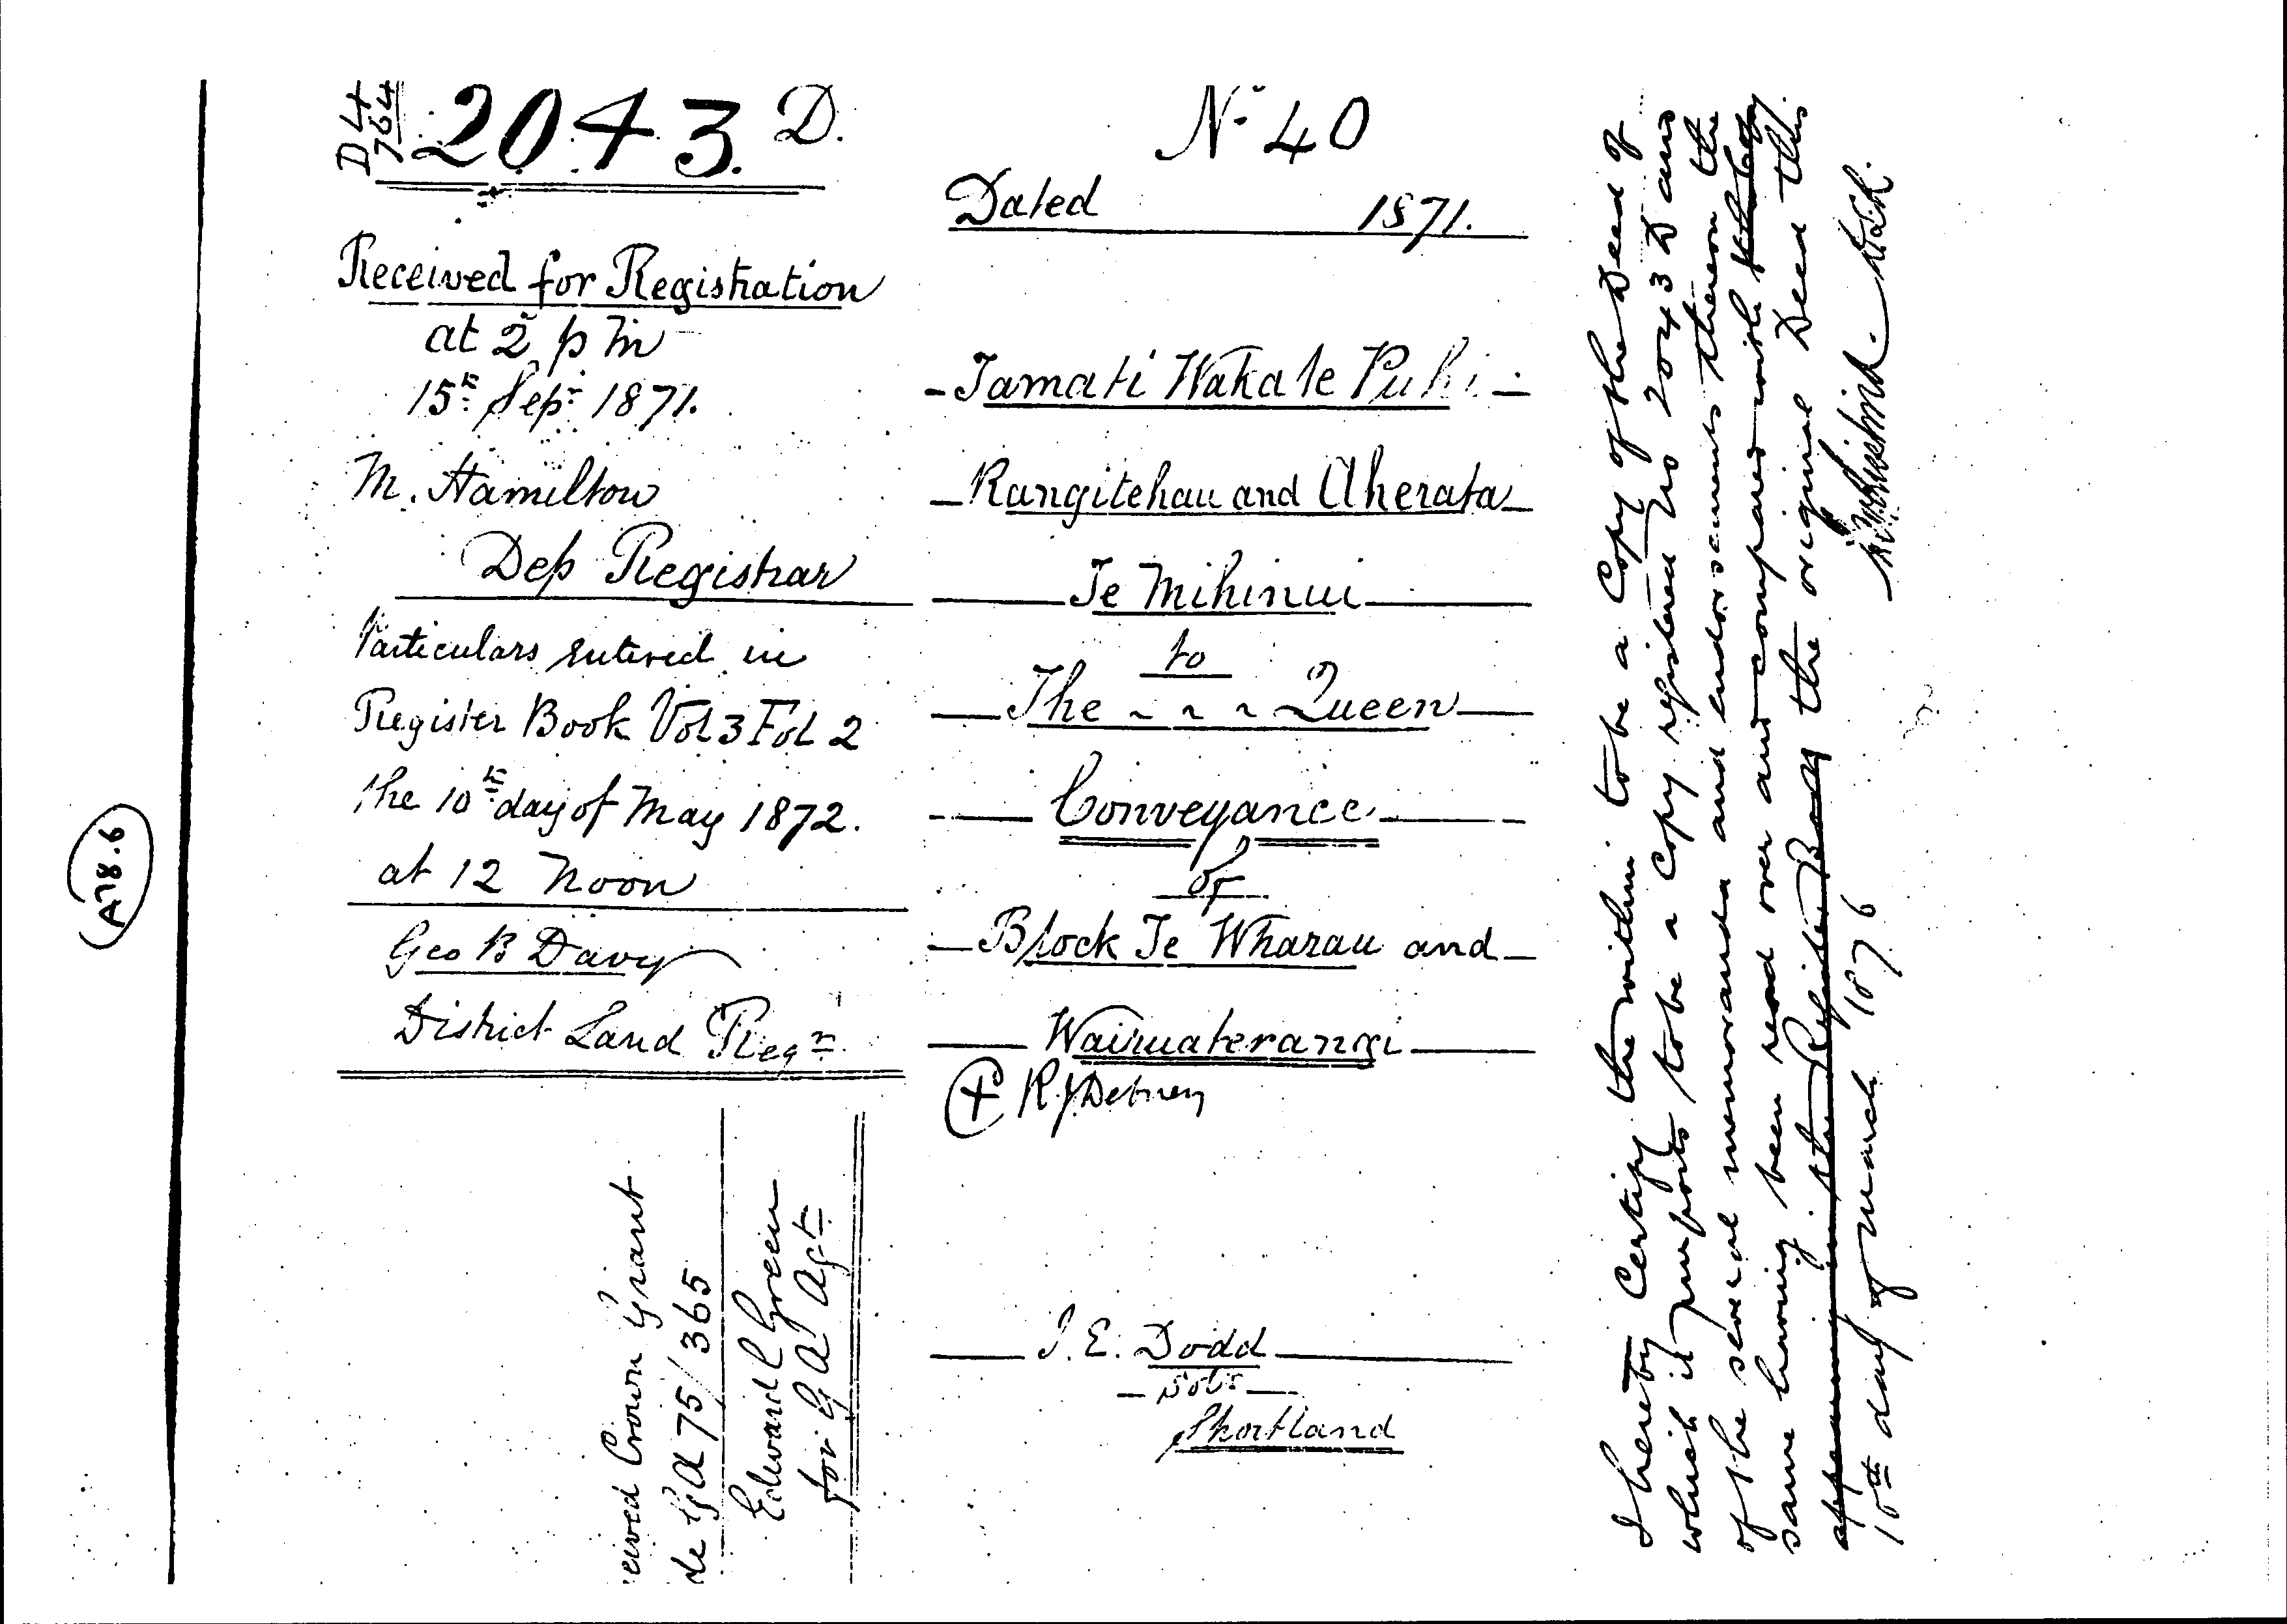 D4
764
2043. D.
Received for Registration
at 2 p m
15th Sepr 1871.
M. Hamilton
Dep Registrar
Particulars entered in
Register Book Vol 3 Fol 2
the 10th day of May 1872.
at 12 noon
Geo B Davy
District Land Regr
eived Crown Grant
de G A 75/365
Edward C Green
for G A Agt
No 40
Dated 1871.
Tamati Waka te Puhi
Rangitehau and Aherata
Te Mihinui
to
The ~ ~ ~ Queen
Conveyance
of
Block Te Wharau and
Waimaterangi
R J Detrey
J. E. Dodd
Solr
Shortland
I hereby Certify the within to be a Copy of the Deed of
which it purports to be a Copy registered No 2043 D and
of the several memoranda and endorsements thereon the
same having been read over and compared with
appearing in the Register Book the original Deed this
10th day of March 1876
A78.6